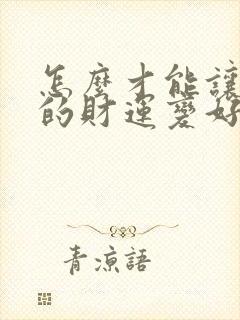 怎麼才能讓
的財運變好
青涼語